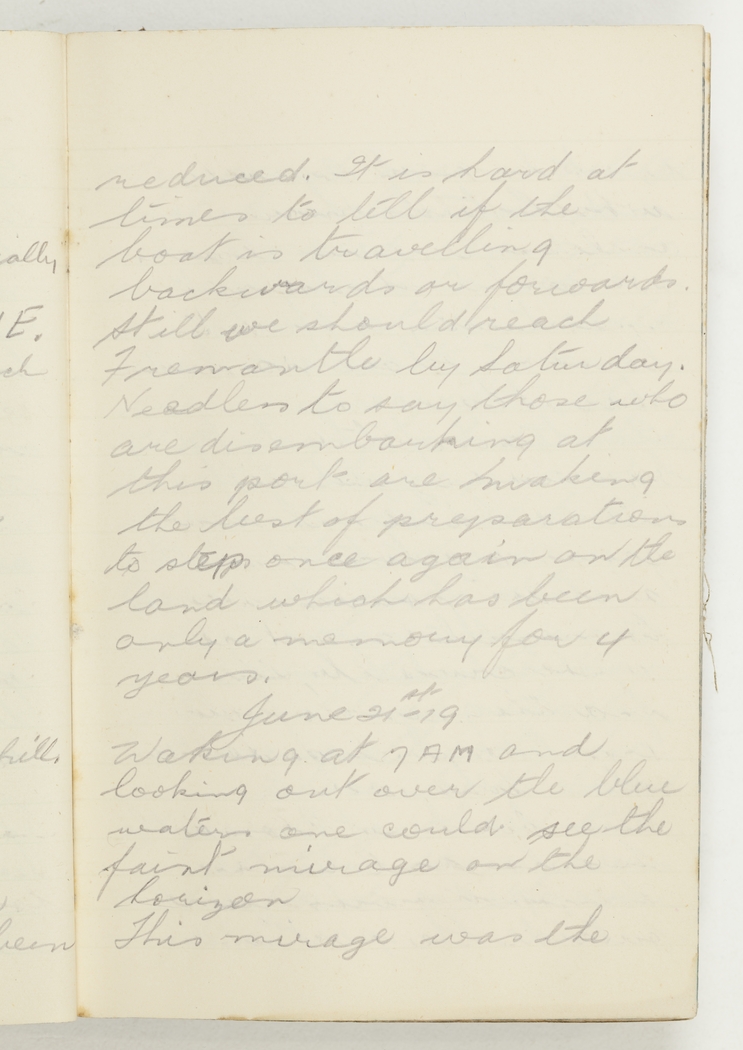 reduced. It is hard at
times to tell if the
boat is travelling
backwards or forwards.
Still we should reach
Fremantle by Saturday.
Needless to say those who
are disembarking at
this port are making
the best of preparations
to step once again on the
land which has been
only a memory for 4
years.
June 21st 19
Waking at 7 AM and
looking out over the blue
waters one could see the
faint mirage on the
horizon
This mirage was the
ially
E.
ch
hills
been